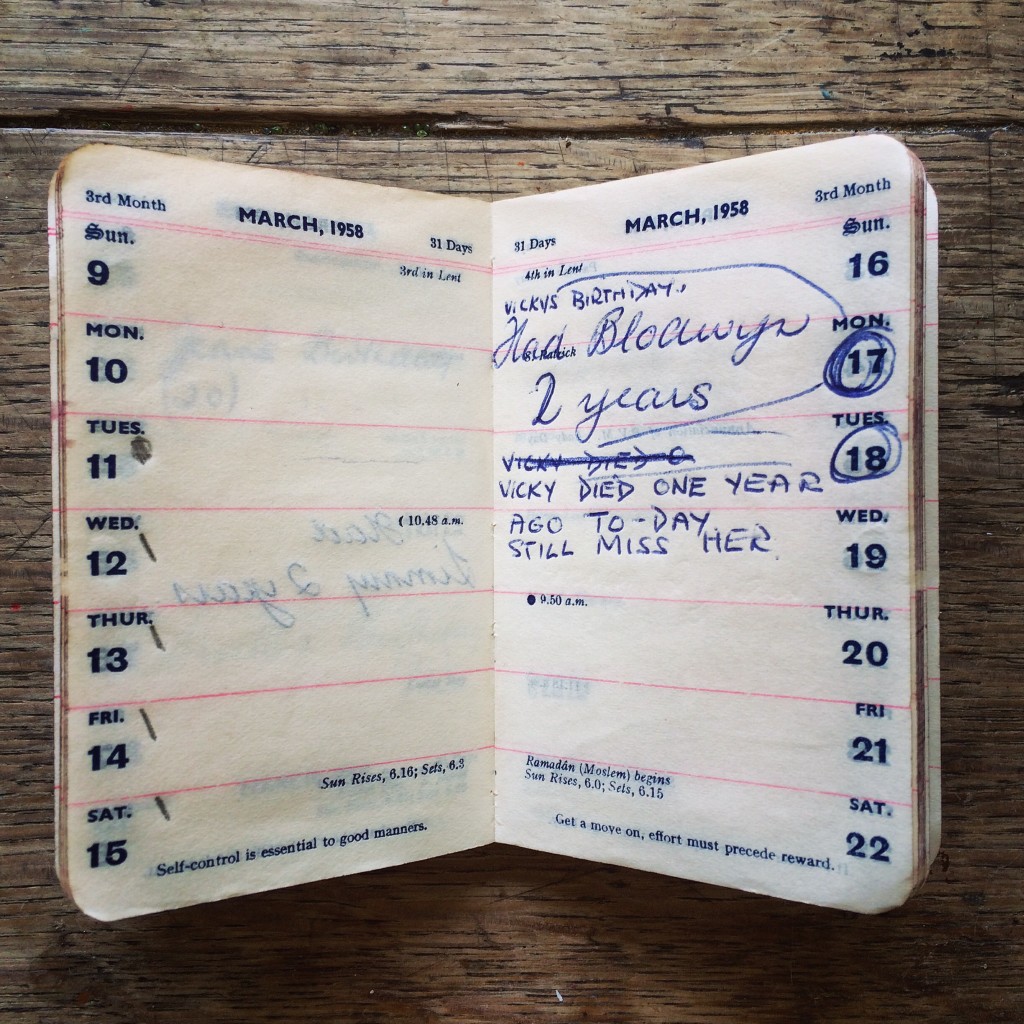 3rd Month
MARCH, 1958
31 Days
Sun.
9
3rd in Lent
MON.
10
TUES.
11
WED.
12
( 10.48 a.m.
THUR.
13
FRI.
14
Sun Rises, 6.16; Sets, 6.3
SAT.
15
Self-control is essential to good manners.
31 Days
MARCH, 1958
3rd Month
Sun.
16
4th in Lent
VICKYS BIRTHDAY.
MON.
17
Had Blodwyn
St Patrick
2 years
TUES.
18
VICKY DIED O
VICKY DIED ONE YEAR
AGO TO-DAY
STILL MISS HER.
WED.
19
● 9.50 a.m.
THUR.
20
FRI
21
Ramadán (Moslem) begins
Sun Rises, 6.0; Sets, 6.15
SAT.
22
Get a move on, effort must precede reward.